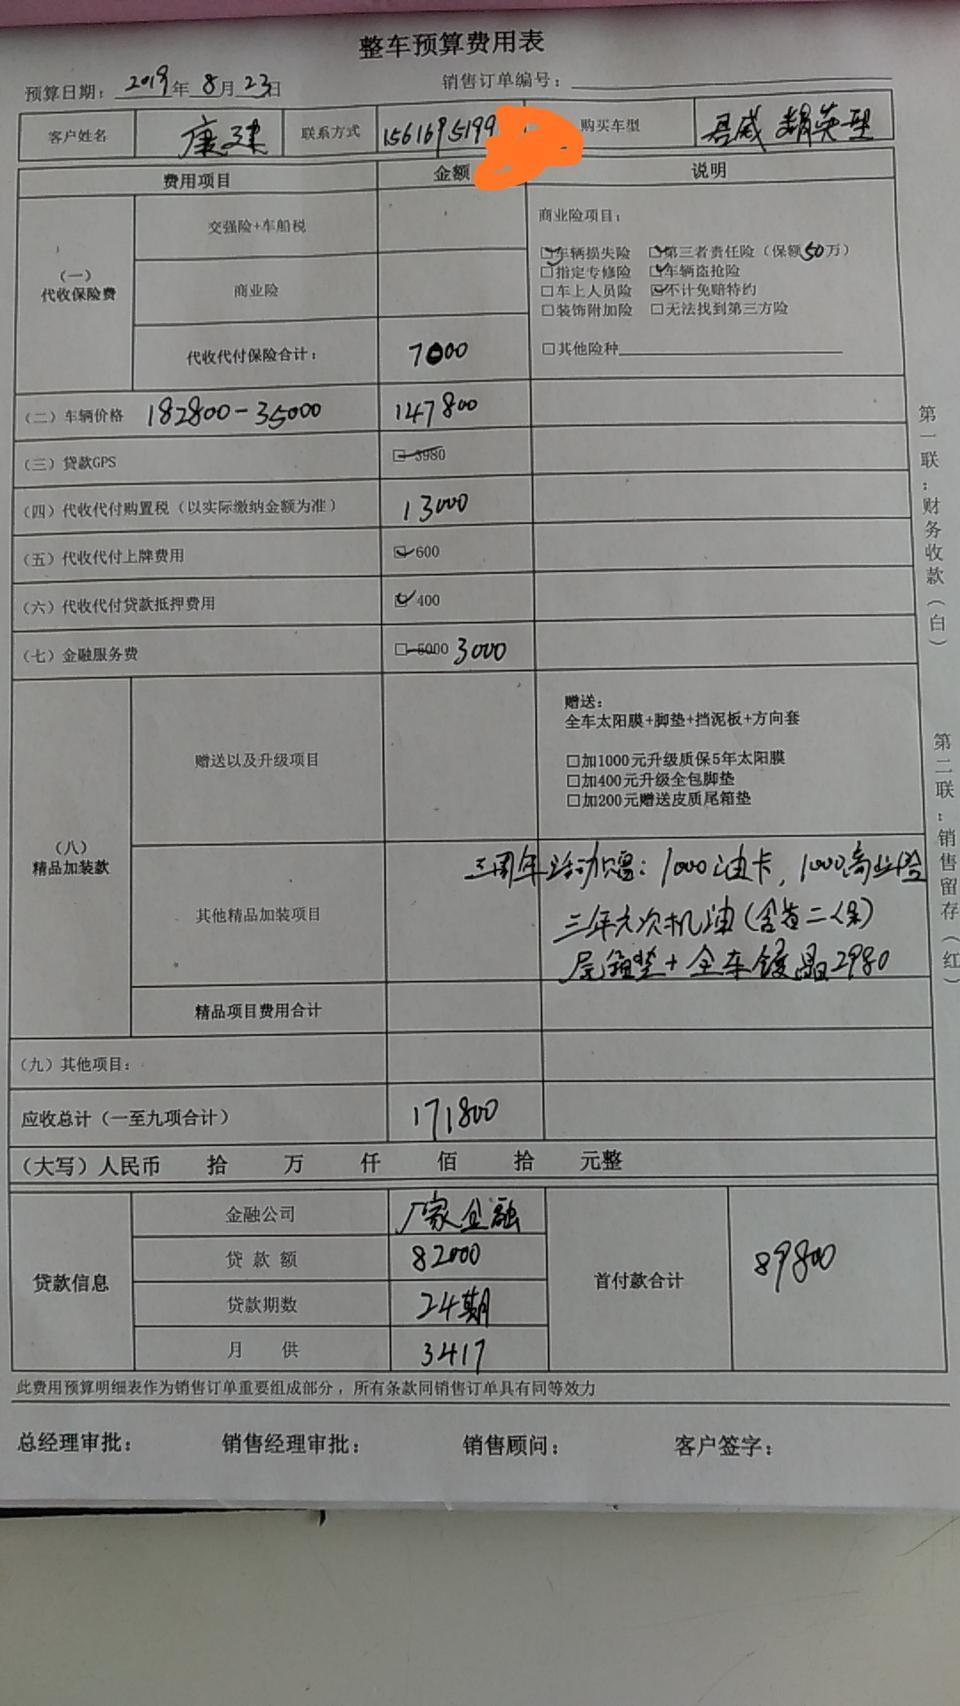 整车预算费用表
预算日期：2019年8月23日 销售订单编号：
客户姓名 康建 联系方式 1561695199 购买车型 君威 精英型
费用项目 金额 说明
（一）
代收保险费
交强险+车船税
商业险
代收代付保险合计： 7000
商业险项目：
☑车辆损失险 ☑第三者责任险（保额50万）
□指定专修险 ☑车辆盗抢险
□车上人员险 ☑不计免赔特约
□装饰附加险 □无法找到第三方险
□其他险种
（二）车辆价格 182800-35000 147800
（三）贷款GPS □ 3980
（四）代收代付购置税（以实际缴纳金额为准） 13000
（五）代收代付上牌费用 ☑600
（六）代收代付贷款抵押费用 ☑400
（七）金融服务费 □ 5000 3000
（八）
精品加装款
赠送以及升级项目
赠送：
全车太阳膜+脚垫+挡泥板+方向套
□加1000元升级质保5年太阳膜
□加400元升级全包脚垫
□加200元赠送皮质尾箱垫
其他精品加装项目
三周年活动：1000油卡，1000商业险
三年六次机油（含首二保）
尾箱垫+全车镀晶2980
精品项目费用合计
（九）其他项目：
应收总计（一至九项合计） 171800
（大写）人民币 拾 万 仟 佰 拾 元整
贷款信息
金融公司 厂家金融
贷款额 82000
贷款期数 24期
月供 3417
首付款合计 89800
此费用预算明细表作为销售订单重要组成部分，所有条款同销售订单具有同等效力
总经理审批： 销售经理审批： 销售顾问： 客户签字：
第一联：财务收款（白）
第二联：销售留存（红）